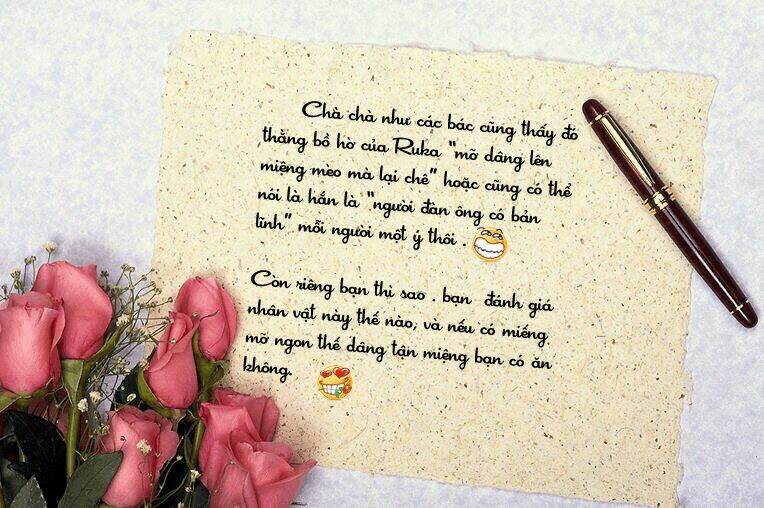 Chà chà như các bác cũng thấy đó
thằng bồ hờ của Ruka "mỡ dâng lên
miệng mèo mà lại chê" hoặc cũng có thể
nói là hắn là "người đàn ông có bản
lĩnh" mỗi người một ý thôi .
Còn riêng bạn thì sao . bạn đánh giá
nhân vật này thế nào, và nếu có miếng
mỡ ngon thế dâng tận miệng bạn có ăn
không.